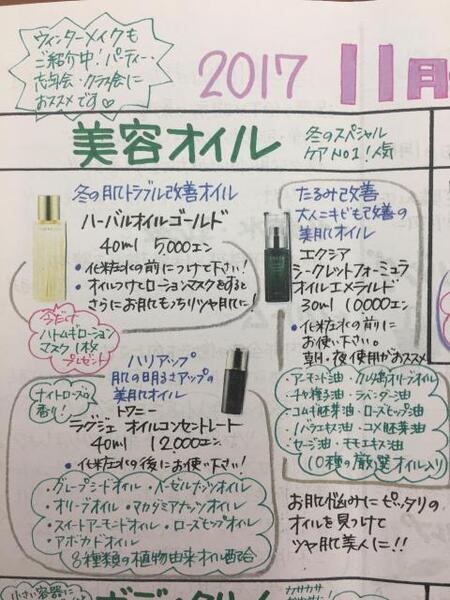 ウィンターメイクも
ご紹介中！パーティー・
忘年会・クラス会に
おススメです♡
2017 11月
美容オイル
冬のスペシャル
ケアNO1！人気
冬の肌トラブル改善オイル
ハーバルオイルゴールド
40ml 5,000エン
・化粧水の前につけて下さい！
・オイルつけてローションマスクをすると
さらにお肌もっちりツヤ肌に！
今だけ
ハトムギローション
マスク1枚
プレゼント
たるみ改善
大人ニキビも改善の
美肌オイル
エクシア
シークレットフォーミュラ
オイルエメラルド
30ml 10000エン
・化粧水の前に
お使い下さい。
朝・夜使用がおススメ
・アーモンド油・クルミ
オリーブオイル
・チャ種子油・ラベンダー油
・コムギ胚芽油・ローズヒップ油
・コメ胚芽油
・セージ油・モモエキス油
10種の厳選オイル入り
ナイトローズの
香り！
ハリアップ
肌の明るさアップの
美肌オイル
トワニー
ラグジェ オイルコンセントレート
40ml 12,000エン
・化粧水の後にお使い下さい！
・グレープシードオイル・ヘーゼルナッツオイル
・オリーブオイル・マカダミアナッツオイル
・スイートアーモンドオイル・ローズヒップオイル
・アボカドオイル
8種類の植物由来オイル配合
お肌悩みにピッタリの
オイルを見つけて
ツヤ肌美人に！！
小さい容器に
カサカサ